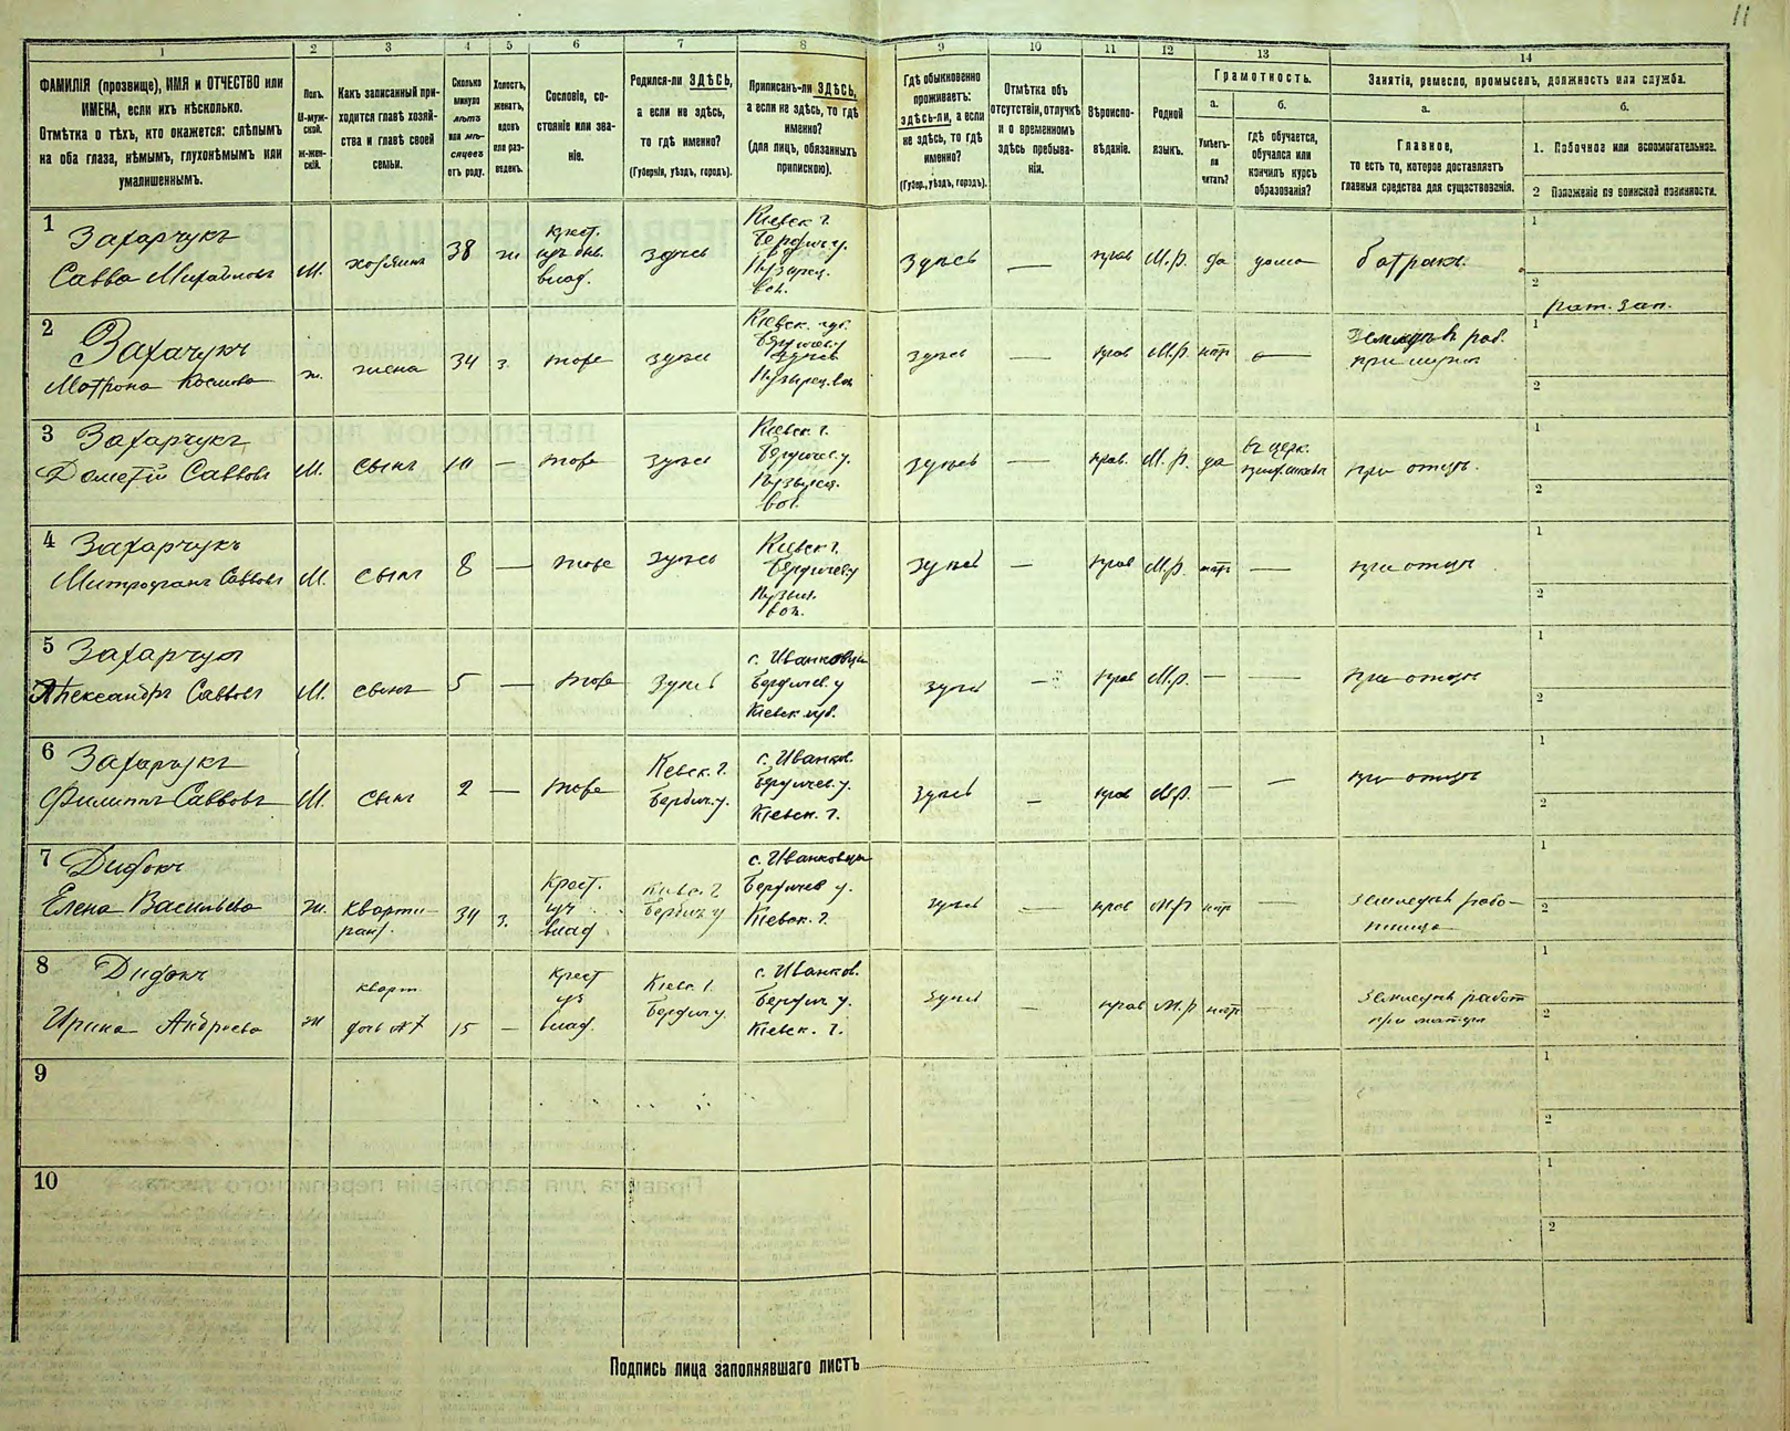 11
1 2 3 4 5 6 7 8 9 10 11 12 13 14
ФАМИЛІЯ (прозвище), ИМЯ и ОТЧЕСТВО или
ИМЕНА, если ихъ нѣсколько.
Отмѣтка о тѣхъ, кто окажется: слѣпымъ
на оба глаза, нѣмымъ, глухонѣмымъ или
умалишеннымъ.
Полъ.
М-муж-
ской.
Ж-жен-
скій.
Какъ записанный при-
ходится главѣ хозяй-
ства и главѣ своей
семьи.
Сколько
минуло
лѣтъ
или мѣ-
сяцевъ
отъ роду.
Холостъ,
женатъ,
вдовъ
или раз-
веденъ.
Сословіе, со-
стояніе или зва-
ніе.
Родился-ли ЗДѢСЬ,
а если не здѣсь,
то гдѣ именно?
(Губернія, уѣздъ, городъ).
Приписанъ-ли ЗДѢСЬ,
а если не здѣсь, то гдѣ
именно?
(для лицъ, обязанныхъ
припискою).
Гдѣ обыкновенно
проживаетъ:
здѣсь-ли, а если
не здѣсь, то гдѣ
именно?
(Губер., уѣздъ, городъ).
Отмѣтка объ
отсутствіи, отлучкѣ
и о временномъ
здѣсь пребыва-
ніи.
Вѣроиспо-
вѣданіе.
Родной
языкъ.
Грамотность.
а.
Умѣетъ-
ли
читать?
б.
гдѣ обучается,
обучался или
кончилъ курсъ
образованія?
Занятія, ремесло, промыселъ, должность или служба.
а.
Главное,
то есть то, которое доставляетъ
главныя средства для существованія.
б.
1. Побочное или вспомогательное.
2 Положеніе по воинской повинности.
1
Захарчукъ
Савва Михайловъ
М.
хозяинъ
38
ж
крест.
изъ быв.
влад.
здѣсь
Кіевск г.
Бердич у.
вол.
здѣсь
—
прав
М.р.
да
дома
батракъ.
1
2
рат. зап.
2
Захарчукъ
Матрона Космова
ж.
жена
34
з.
тоже
здѣсь
Кіевск. губ.
Бердичев. у
здѣсь
—
прав
М.р.
нѣт
—
Земледѣл раб.
при мужѣ
1
2
3
Захарчукъ
Дометій Саввовъ
М.
сынъ
10
—
тоже
здѣсь
Кіевск. г.
Бердичев. у.
вол.
здѣсь
—
прав.
М. р.
да
въ церк.
при отцѣ.
1
2
4
Захарчукъ
Митрофанъ Саввовъ
М.
сынъ
8
—
тоже
здѣсь
Кіевск г.
Бердичев у
вол.
здѣсь
—
прав
М.р.
нѣт
—
при отцѣ
1
2
5
Захарчукъ
Александръ Саввовъ
М.
сынъ
5
—
тоже
здѣсь
с. Иванковцы
Бердичев. у
Кіевск губ.
здѣсь
—
прав
М.р.
—
—
при отцѣ
1
2
6
Захарчукъ
Филиппъ Саввовъ
М.
сынъ
2
—
тоже
Кевск. г.
Бердич. у.
с. Иванков.
Бердичев. у.
Кіевск. г.
здѣсь
—
прав
М.р.
—
—
при отцѣ
1
2
7
Дидокъ
Елена Васильева
ж.
кварти-
рант.
34
з.
Крест.
из
влад
Киев. г
Бердич у
с. Иванковцы
Бердичев у.
Кіевск. г.
здѣсь
—
прав
М.р
нѣт
—
земледѣл рабо-
тница
1
2
8
Дидокъ
Ирина Андреева
ж
кварт.
дочь №7
15
—
крест
из
влад.
Кіевс. г.
Бердич у.
с. Иванков.
Бердич у.
Кіевск. г.
здѣсь
—
прав
М.р
нѣт
—
земледѣл работ
при матери
1
2
9
1
2
10
1
2
Подпись лица заполнявшаго листъ